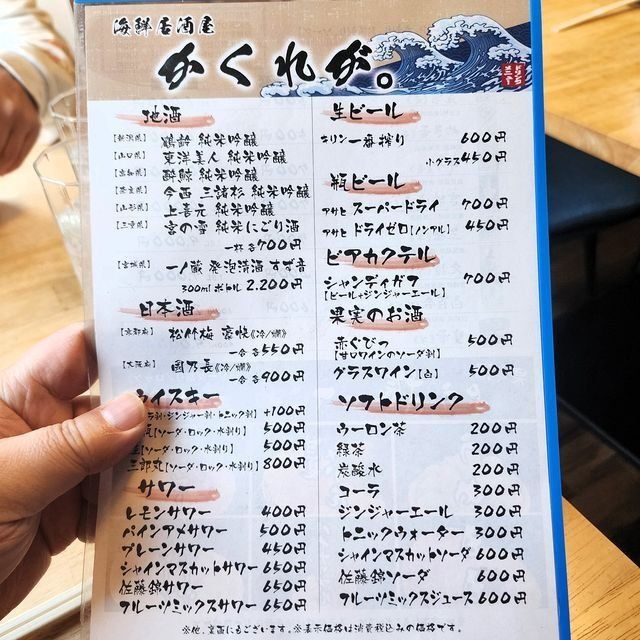 海鮮居酒屋
かくれが。
地酒
【新潟県】 鶴齢 純米吟醸
【山口県】 東洋美人 純米吟醸
【高知県】 酔鯨 純米吟醸
【奈良県】 今西 三諸杉 純米吟醸
【山形県】 上喜元 純米吟醸
【三重県】 宮の雪 純米にごり酒
一杯 各700円
【宮城県】 一ノ蔵 発泡清酒 すず音
300ml ボトル 2.200円
日本酒
【京都府】 松竹梅 豪快《冷/燗》
一合 各550円
【大阪府】 國乃長《冷/燗》
一合 各900円
ウイスキー
ジンジャー割・トニック割】 +100円
【ソーダ・ロック・水割り】 500円
【ソーダ・ロック・水割り】 500円
三郎丸【ソーダ・ロック・水割り】 800円
サワー
レモンサワー 400円
パインアメサワー 500円
プレーンサワー 450円
シャインマスカットサワー 650円
佐藤錦サワー 650円
フルーツミックスサワー 650円
生ビール
キリン 一番搾り 600円
小グラス 450円
瓶ビール
アサヒ スーパードライ 700円
アサヒ ドライゼロ【ノンアル】 450円
ビアカクテル
シャンディガフ 700円
【ビール+ジンジャーエール】
果実のお酒
赤ぐびっ 500円
【甘口ワインのソーダ割】
グラスワイン【白】 500円
ソフトドリンク
ウーロン茶 200円
緑茶 200円
炭酸水 200円
コーラ 300円
ジンジャーエール 300円
トニックウォーター 300円
シャインマスカットソーダ 600円
佐藤錦ソーダ 600円
フルーツミックスジュース 600円
※他、裏面にもございます。※表示価格は消費税込みの価格です。